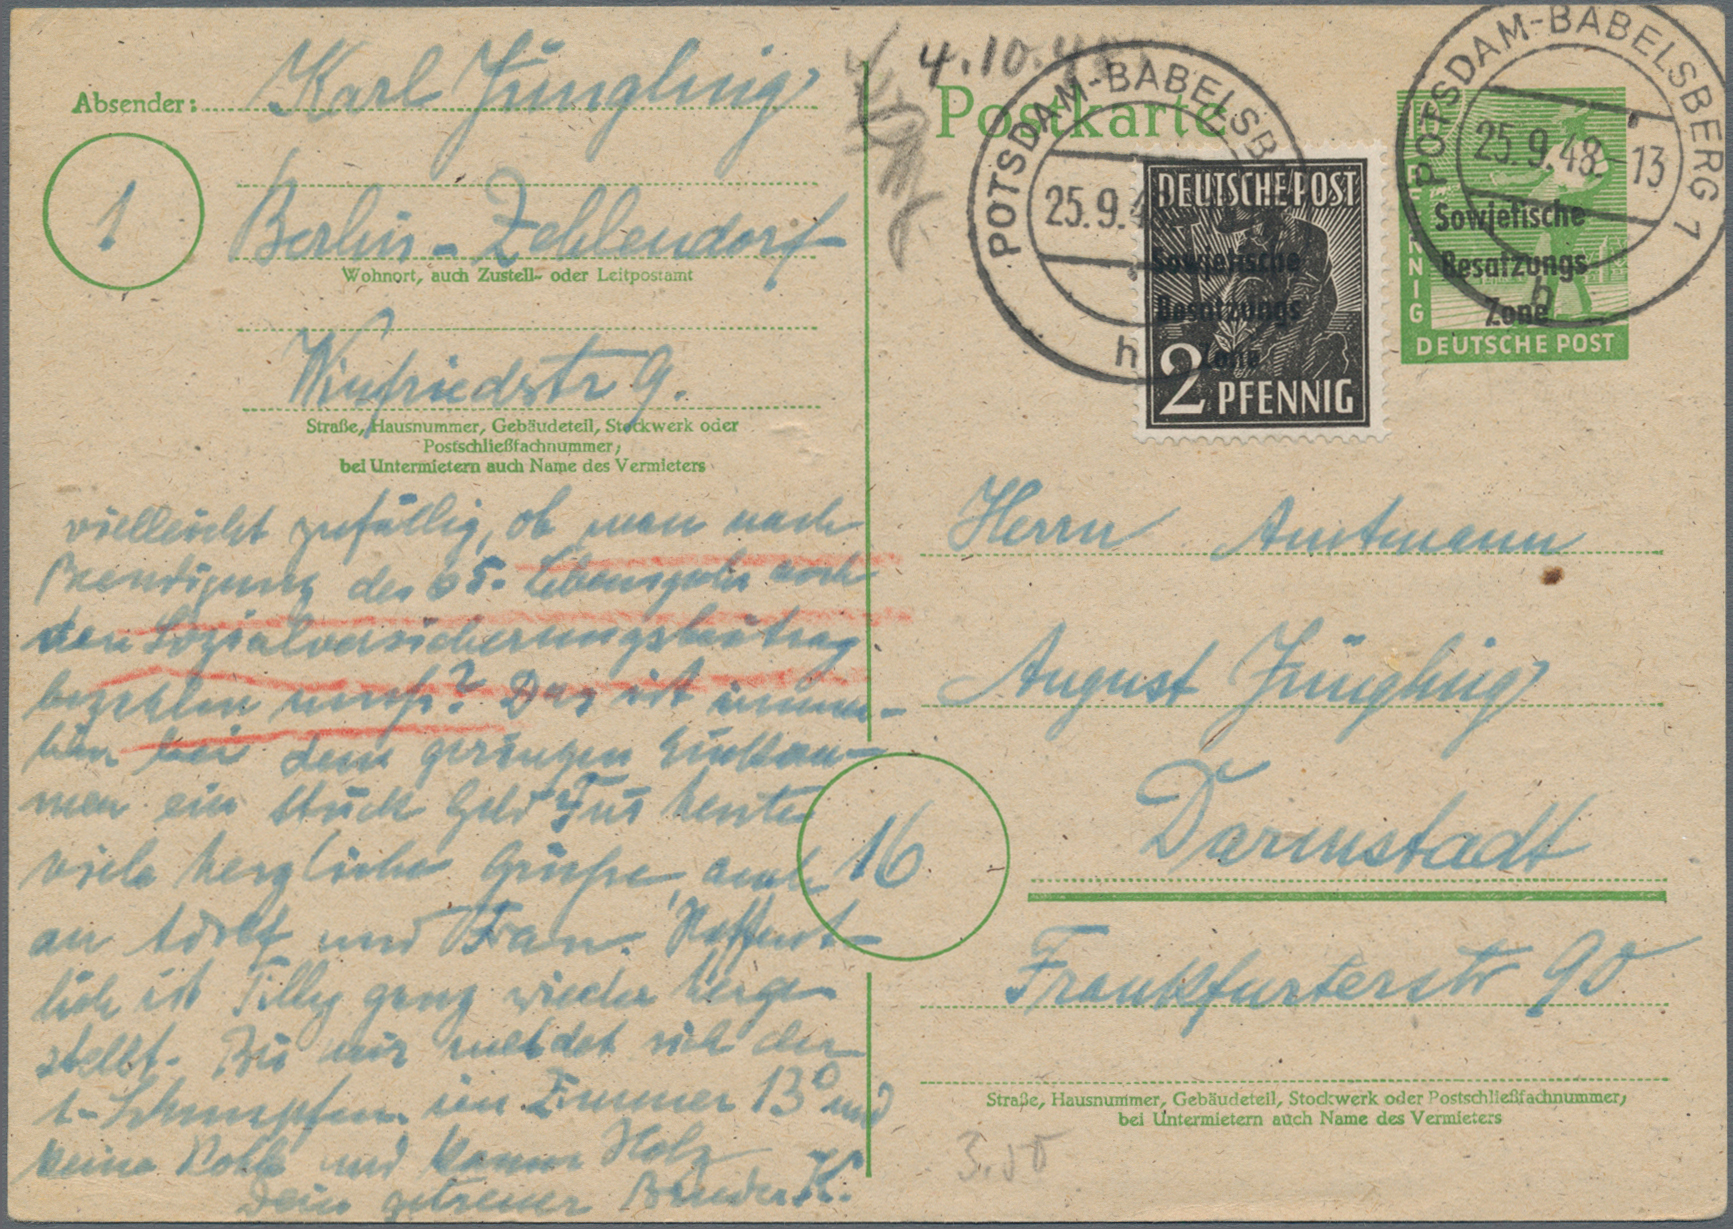 Absender: Karl Jüngling
1
Berlin-Zehlendorf
Wohnort, auch Zustell- oder Leitpostamt
Winfriedstr 9.
Straße, Hausnummer, Gebäudeteil, Stockwerk oder
Postschließfachnummer,
bei Untermietern auch Name des Vermieters
vielleicht zufällig, ob man nach
Beendigung des 65. Lebensjahrs noch
den Sozialversicherungsbeitrag
bezahlen muß? Das ist immer-
hin bei dem geringen Einkom-
men ein Stück Geld. Für heute
viele herzliche Grüße, auch
an Adolf und Frau. Hoffent-
lich ist Tilly ganz wieder herge-
stellt. Bei mir meldet sich der
1. Schnupfen. im Zimmer 13° und
keine Kohle und kaum Holz
Dein getreuer Bruder K.
4.10.48
Postkarte
POTSDAM-BABELSB
25.9.4
h
DEUTSCHE POST
Sowjetische
Besatzungs
Zone
2 PFENNIG
POTSDAM-BABELSBERG 1
25.9.48-13
h
Sowjetische
Besatzungs
Zone
DEUTSCHE POST
Herrn Amtmann
August Jüngling
16
Darmstadt
Frankfurterstr 90
Straße, Hausnummer, Gebäudeteil, Stockwerk oder Postschließfachnummer,
bei Untermietern auch Name des Vermieters